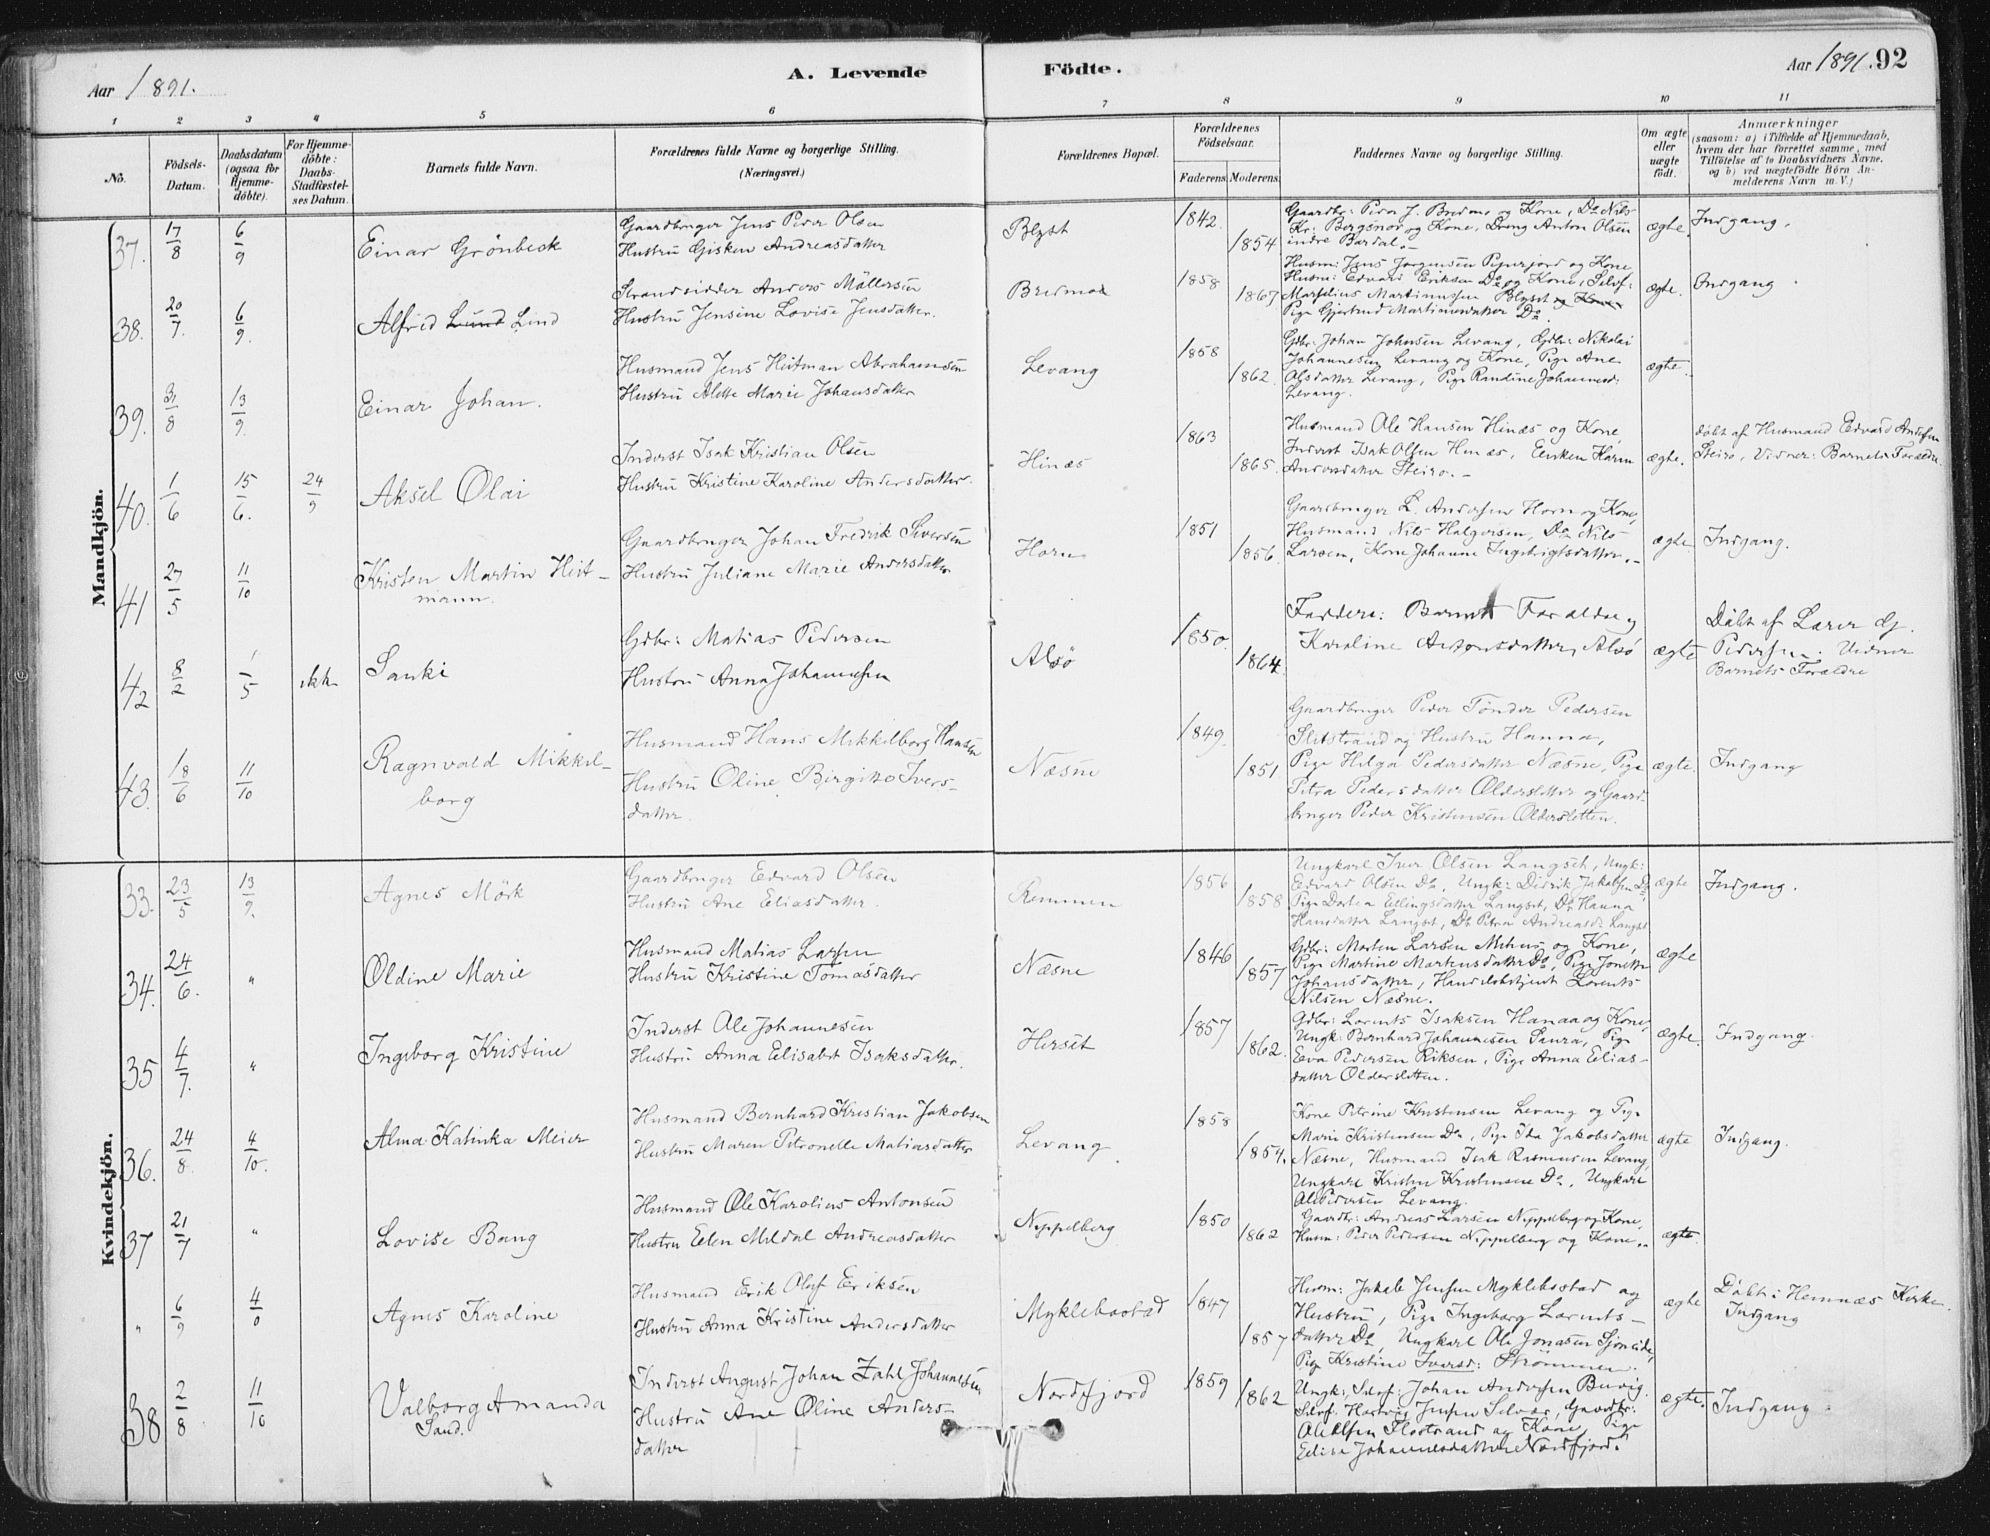 Aar 1891.
A. Levende
Födte.
Aar 1891. 92
1 2 3 4 5 6 7 8 9 10 11
No.
Födsels-Datum.
Daabsdatum (ogsaa for Hjemme-döbte).
For Hjemme-döbte: Daabs-Stadfæstel-ses Datum.
Barnets fulde Navn.
Forældrenes fulde Navne og borgerlige Stilling.
(Næringsvei.)
Forældrenes Bopæl.
Forældrenes Födselsaar.
Faderens. Moderens.
Faddernes Navne og borgerlige Stilling.
Om ægte eller uægte födt.
Anmærkninger
(saasom: a) i Tilfælde af Hjemmedaab, hvem der har forrettet samme, med Tilföielse af to Daabsvidners Navne, og b) ved uægtefödte Börn An-melderens Navn m. V.)
Mandkjön.
37. 17/8 6/9 Einar Grönbeck
Gaardbruger Jens Peder Olsen
Hustru Gisken Andreasdatter
Blyst 1842. 1854
Gaardbr: Peder J. Bredmo og Kone, Do Nils
Kr: Bergsnov og Kone, Dreng Anton Olsen
indre Bardal.
ægte. Indgang.
38. 20/7. 6/9. Alfred Lund Lind
Strandsidder Anders Möllersen
Hustru Jensine Lovise Jensdatter.
Bredmo 1858 1867
Husm: Jens Jorgensen Peperfjord og Kone,
Husm: Edvard Eriksen Do og Kone, Selvf:
Marselius Martinussen Blyst og Kone
Pige Gjertrud Martinusdatter Do
ægte. Indgang.
39. 31/8 13/9. Einar Johan.
Husmand Jens Heitman Abrahamsen
Hustru Alette Marie Johansdatter
Levang 1858 1862.
Gdbr: Johan Johnsen Levang, Gdbr: Nikolai
Johannesen Levang og Kone, Pige Ane
Olsdatter Levang, Pige Randine Johannesd:
Levang.
ægte.
40. 1/6 15/6. 24/9 Aksel Olai
Inderst Isak Kristian Olsen
Hustru Kristine Karoline Andersdatter.
Hinæs 1863 1865.
Husmand Ole Hansen Hinæs og Kone,
Inderst Isak Olsen Hinæs, Enken Karen
Andersdatter Steiro.
ægte.
döbt af Husmand Edvard Andersen
Steiro, Vidner: Barnets Forældre.
41 27/5 11/10 Kristen Martin Heit-
mann.
Gaardbruger Johan Fredrik Sivertsen
Hustru Juliane Marie Andersdatter
Horn 1851 1856.
Gaardbruger L. Andersen Horn og Kone,
Husmand Nils Halgersen, Do Nils
Larsen, Kone Johanne Ingebrigtsdatter.
ægte Indgang.
42 8/2 1/5 ikke Sanki
Gdbr: Matias Pedersen
Hustru Anna Johannesen
Alsö 1850. 1864.
Faddere: Barnets Forældre og
Karoline Antonsdatter, Alsö
ægte
Döbt af Lærer G.
Pedersen. Vidner
Barnets Forældre
43. 18/6 11/10 Ragnvald Mikkel-
borg
Husmand Hans Mikkelborg Hansen
Hustru Oline Birgitte Ivers-
datter.
Næsne 1849. 1851
Gaardbruger Peder Tönder Pedersen
Slitstrand og Hustru Hanna,
Pige Helga Pedersdatter Næsne, Pige
Petra Pedersdatter Oldersletten og Gaard-
bruger Peder Kristensen Oldersletten.
ægte Indgang
Kvindekjön.
33. 23/5 13/9. Agnes Mörk
Gaardbruger Edvard Olsen
Hustru Ane Eliasdatter.
Remmen 1856 1858
Ungkarl Iver Olsen Langset, Ungk:
Edvard Olsen Do, Ungk: Didrik Jakobsen Do
Pige Dortea Ellingsdatter Langset, Do Hanna
Hansdatter Langset, Do Petra Andreasd: Langset
ægte Indgang.
34. 24/6. " Oldine Marie
Husmand Matias Larsen
Hustru Kristine Tomasdatter
Næsne 1846 1857
Gdbr: Morten Larsen Mehus og Kone,
Pige Martine Martensdatter Do, Pige Jonette
Johansdatter, Handelsbetjent Lorents
Nilsen Næsne.
ægte
35 4/7. " Ingeborg Kristine
Inderst Ole Johannesen
Hustru Anna Elisabet Isaksdatter.
Herset 1857 1862.
Gdbr: Lorents Isaksen Hanaa og Kone,
Ungk: Bernhard Johannesen Saura, Pige
Eva Pedersen Riksen, Pige Anna Elias-
datter Oldersletten.
ægte. Indgang.
36. 24/8. 4/10. Alma Katinka Meier
Husmand Bernhard Kristian Jakobsen
Hustru Maren Petronelle Matiasdatter
Levang 1858 1854.
Kone Petrine Kristensen Levang og Pige
Marie Kristensen Do, Pige Ida Jakobsdatter
Næsne, Husmand Isak Rasmussen Levang,
Ungkarl Kristen Kristensen Do, Ungkarl
Ole Pedersen Levang.
ægte Indgang.
37 21/7 " Lovise Bang
Husmand Ole Karolius Antonsen
Hustru Elen Meldal Andreasdatter
Nippelberg 1850 1862
Gaardbr: Andreas Larsen Nippelberg og Kone,
Husm: Peder Pedersen Nippelberg og Kone.
ægte.
" 6/9 4/0 Agnes Karoline
Husmand Erik Olaf Eriksen
Hustru Anna Kristine Andersdatter
Myklebostad 1847 1857
Husm: Jakob Jensen Myklebostad og
Hustru, Pige Ingeborg Lorents-
datter Do, Ungkarl Ole Jonasen Sjoneide,
Pige Kristine Iversd: Strömmen.
ægte
Döbt i Hemnæs Kirke.
Indgang
38 2/8 11/10 Valborg Amanda
Sand.
Inderst August Johan Zahl Johannesen
Hustru Ane Oline Anders-
datter
Nordfjord 1859 1862
Ungk: Selvf: Johan Andersen Buvig,
Selvf: Hartvig Jensen Selvær, Gaardbr:
Ole Olsen Flostrand og Kone, Pige
Elise Johannesdatter Nordfjord.
ægte. Indgang.